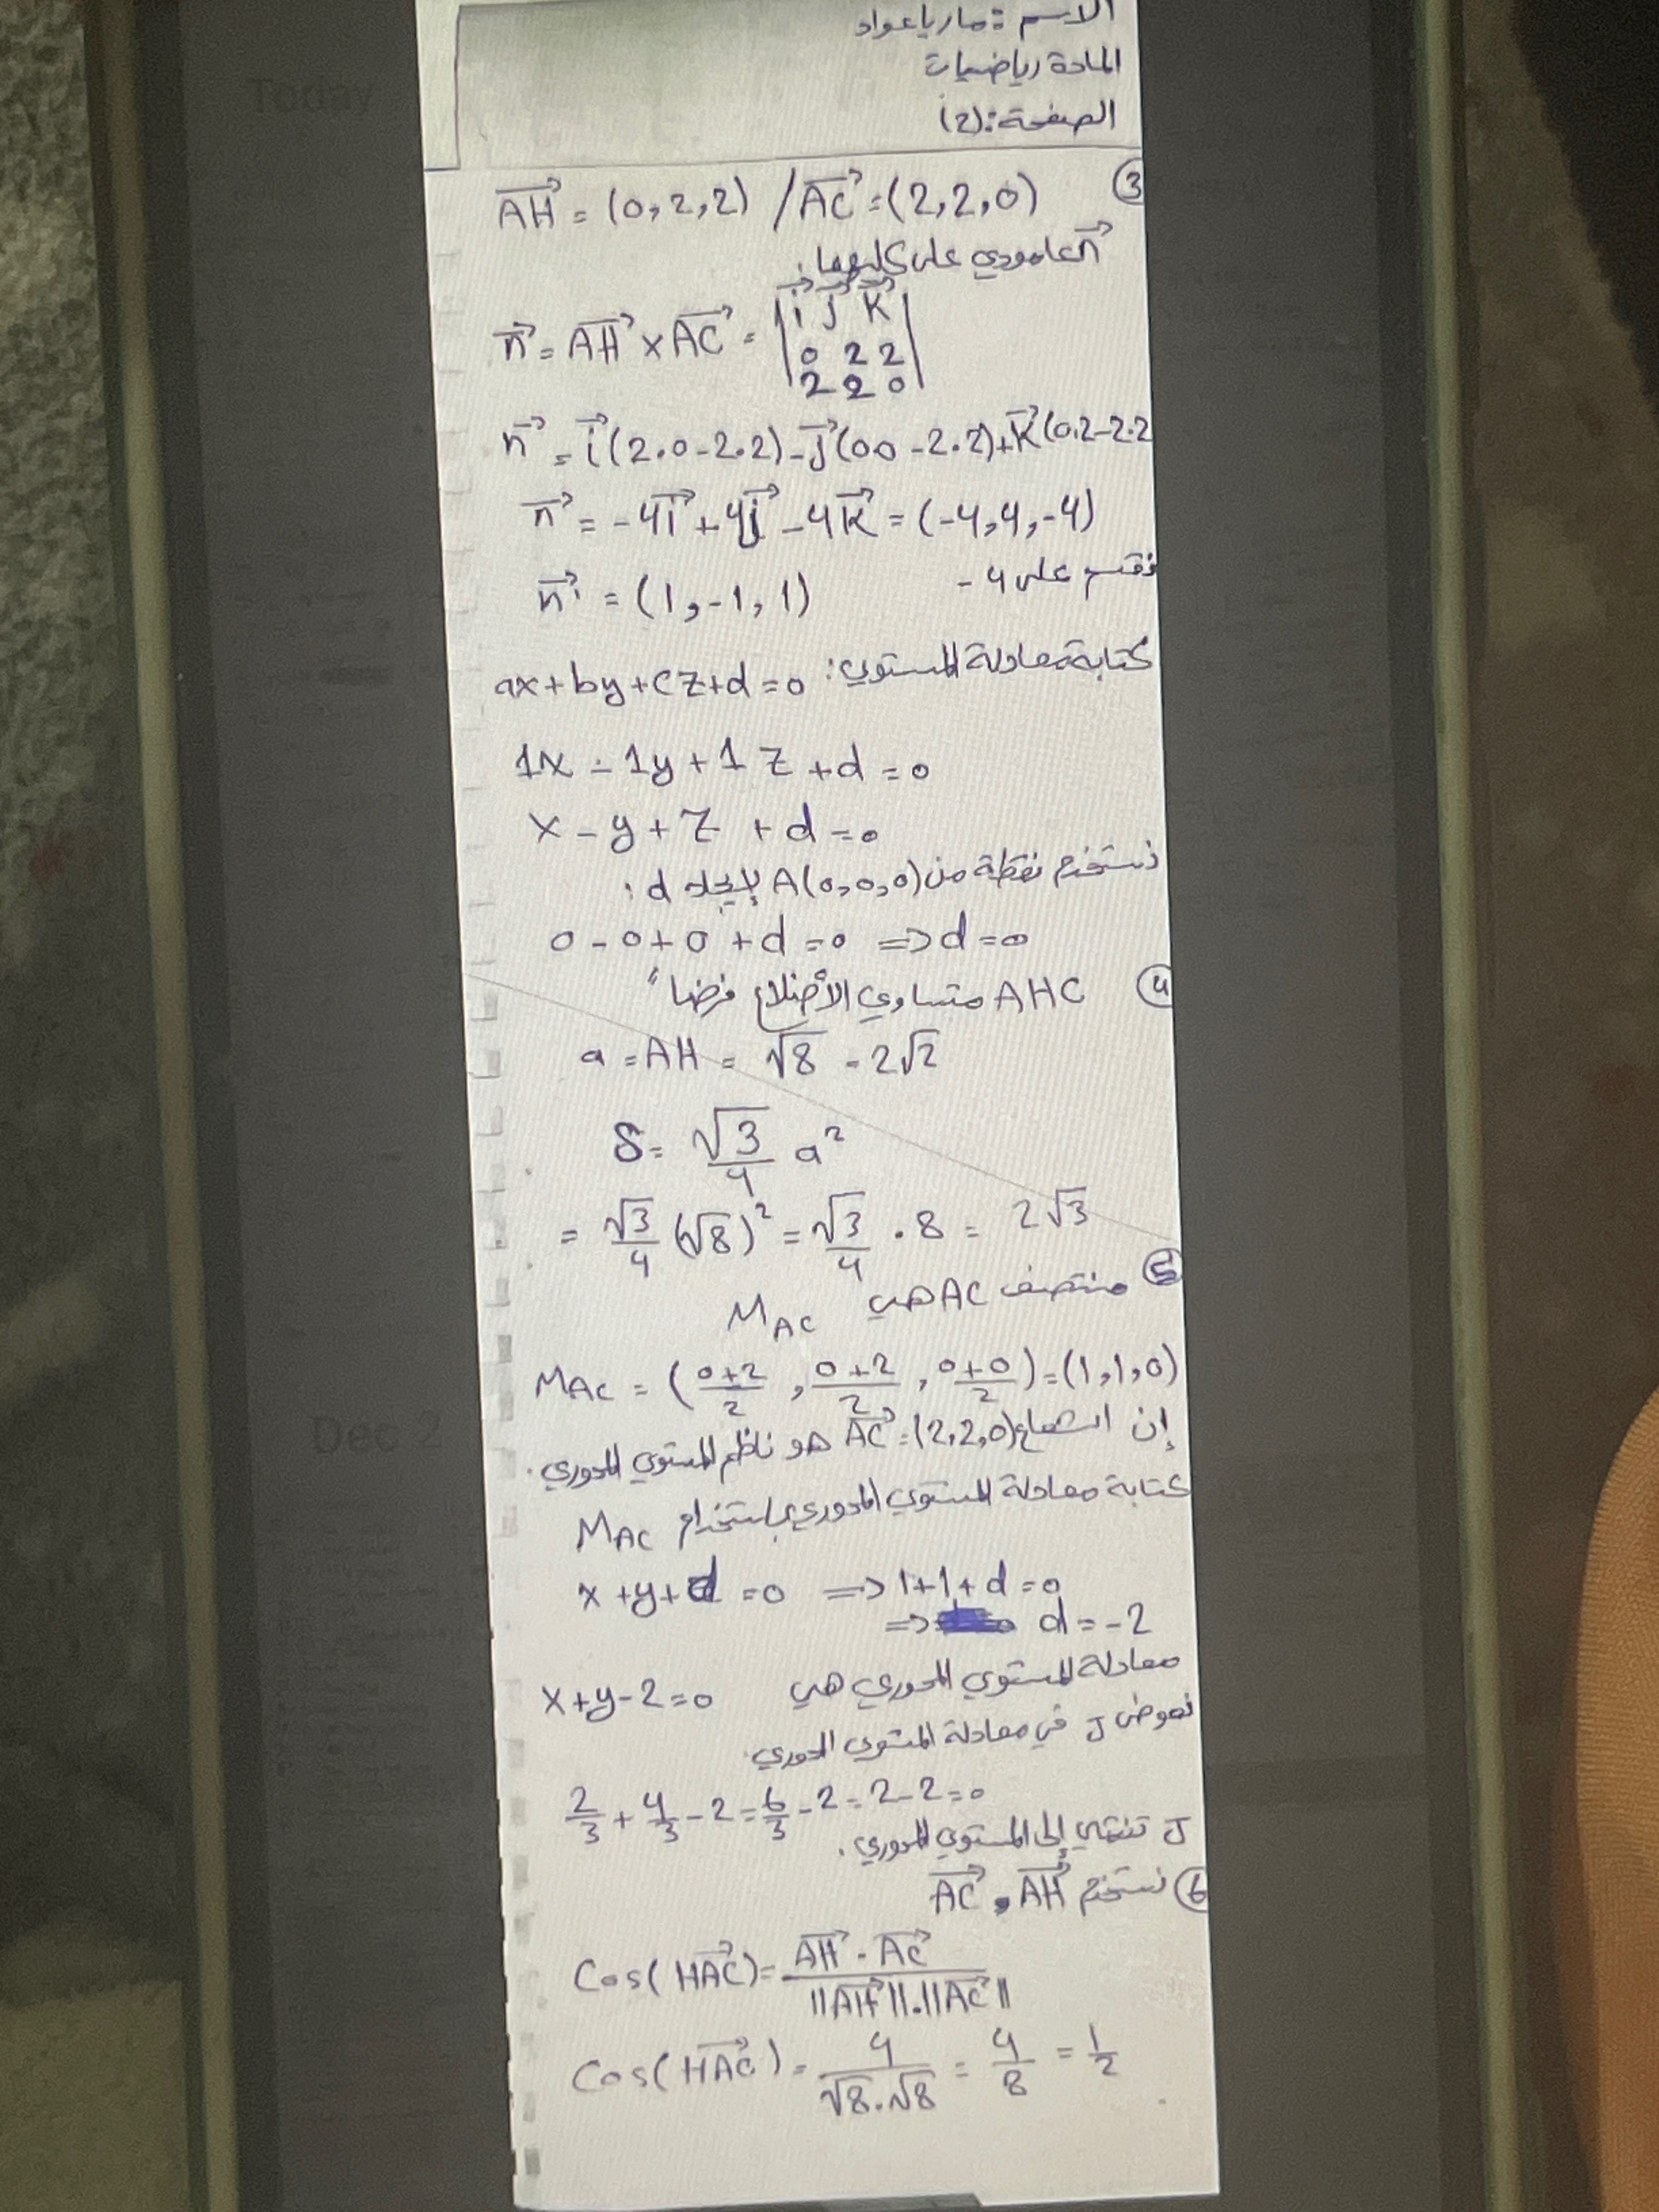 الاسم: ماريا عواد
المادة رياضيات
الصفحة: (2)
③ AH→ = (0,2,2) / AC→ = (2,2,0)
n→ عامودي على كليهما:
n→ = AH→ × AC→ = | i→ j→ k→ |
0 2 2
2 2 0
n→ = i→(2.0-2.2)-j→(00-2.2)+k→(0.2-2.2
n→ = -4i→ + 4j→ - 4k→ = (-4,4,-4)
نقسم على 4-
n→' = (1,-1,1)
كتابة معادلة المستوي: ax+by+cz+d=0
1x - 1y + 1z + d = 0
x - y + z + d = 0
نستخدم نقطة من A(0,0,0) لإيجاد d:
0 - 0 + 0 + d = 0 => d = 0
④ AHC متساوي الأضلاع فرضاً
a = AH = √8 = 2√2
S = √3/4 a²
= √3/4 (√8)² = √3/4 . 8 = 2√3
⑤ منتصف AC هي M AC
MAC = (0+2/2, 0+2/2, 0+0/2) = (1,1,0)
إن الشعاع AC→ = (2,2,0) هو ناظم المستوي المحوري.
كتابة معادلة المستوي المحوري باستخدام MAC
x + y + d = 0 => 1+1+d = 0
=> d = -2
معادلة المستوي المحوري هي x+y-2=0
نعوض J في معادلة المستوي المحوري.
2/3 + 4/3 - 2 = 6/3 - 2 = 2-2 = 0
J تنتمي إلى المستوي المحوري.
⑥ نستخدم AH→ . AC→
Cos(HAC→) = AH→ . AC→ / ||AH→||.||AC→||
Cos(HAC→) = 4/√8.√8 = 4/8 = 1/2